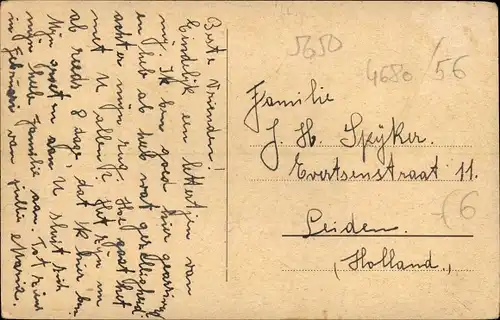 Beste Vrienden!
Eindelijk een lettertjen van
mij. Ik ben goed hier
en heb al heel wat gezelligheid
achter mijn rug. Hoe gaat het
met U allen? Het zijn nu
al reeds 8 dage, dat ik hier ben.
Mijn groeten aan U sluit zich
mijn heele Familie aan. Tot ziens
in Februari van jullie Maria.
5650
4680/56
Familie
J. H. Spÿker.
Evertsenstraat 11.
Leiden.
(Holland.)
-f6